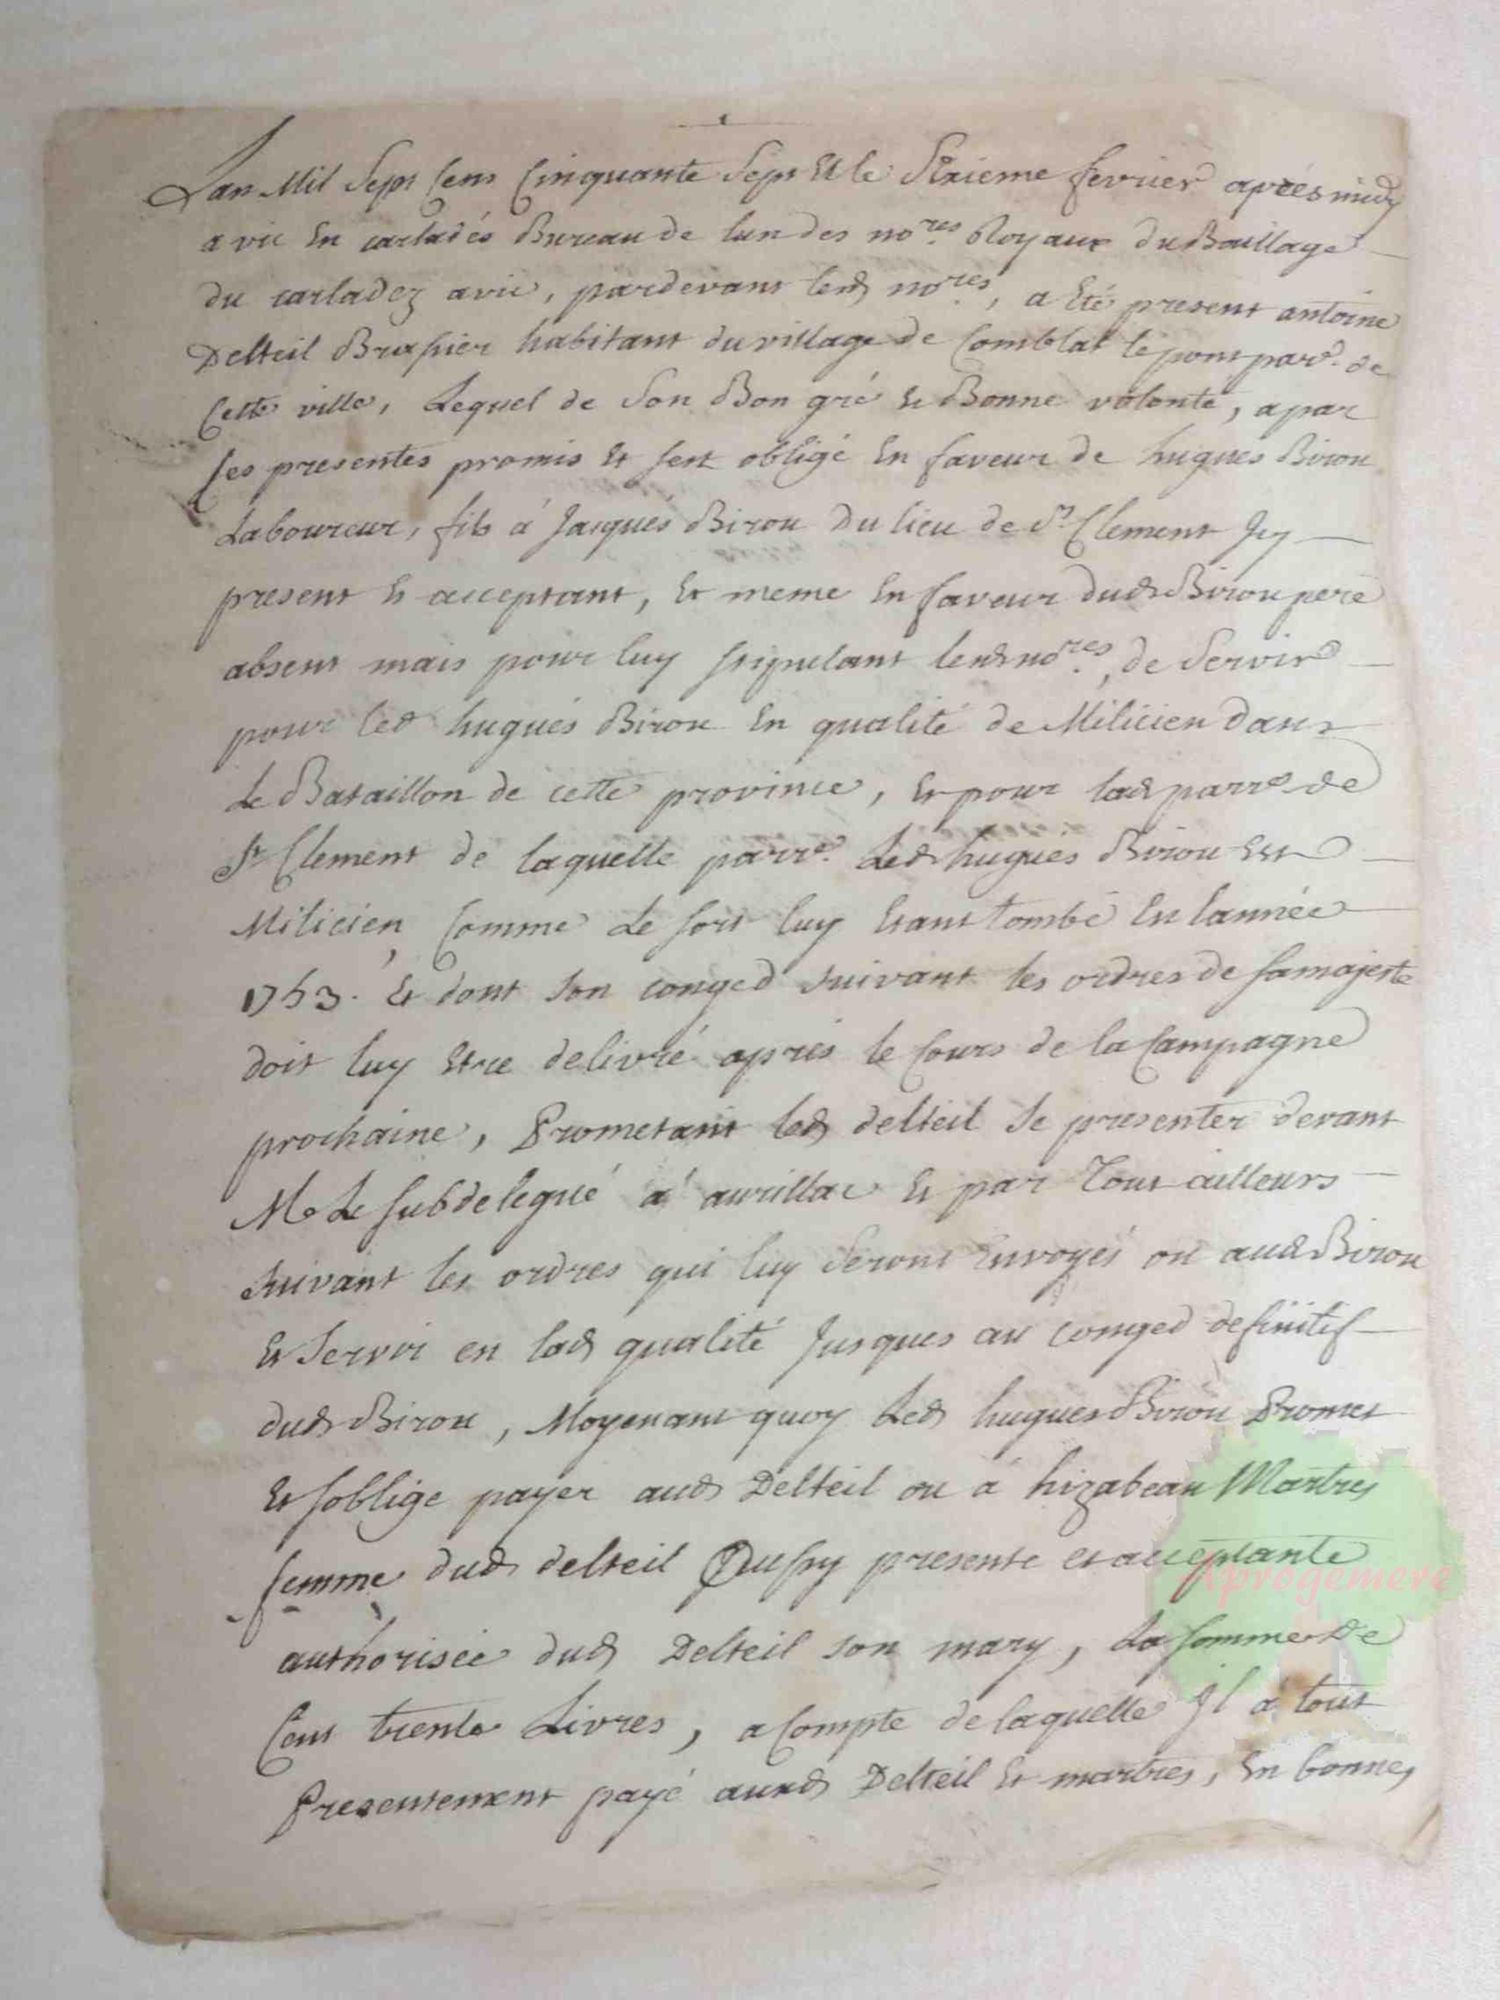 Lan Mil Sept Cens Cinquante Sept Et le Sixieme fevrier aprés midy
a vic En carladés Bureau de lun des no.res Royaux du Baillage
du carladez a vic, pardevant lesd no.res, a Eté present antoine
Delteil Brassier habitant du village de Comblat le pont parr.e de
Cette ville, Lequel de Son Bon gré Et Bonne volonté, a par
ses presentes promis Et sest obligé En faveur de hugues Birou
Laboureur, fils á Jacqués Birou Du lieu de St Clement Jcy
present Et acceptant, Et meme En faveur dud Birou pere
absent mais pour luy stipulant lesd no.res, de Servir
pour led hugués Birou En qualité de Milicien dans
Le Bataillon de cette province, Et pour lad parr.e de
St Clement de laquelle parr.e Led hugués Birou Est
Milicien, Comme Le sort luy Etant tombé En lannée
1753. Et dont son conged suivant les ordres de sa majesté
doit luy Etre delivré aprés le Cours de la Campagne
prochaine, Prometant led delteil Se presenter devant
Mr Le Subdelegué á aurillac Et par Tout ailleurs
suivant les ordres qui luy Seront Envoyés ou aud Birou
Et Servir en lad qualité Jusques au conged definitif
dud Birou, Moyenant quoy Led hugues Birou Promet
Et soblige payer aud Delteil ou á hizabeau Martres
femme dud delteil Aussy presente et acceptante
authorisée dud Delteil son mary, La somme De
Cent trente Livres, a Compte de laquelle Jl á tout
Presentement payé auxd Delteil Et martres, En bonnes
Aprogemere